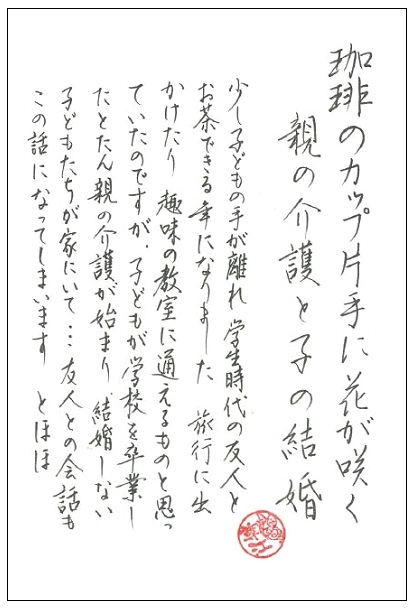 珈琲のカップ片手に花が咲く
親の介護と子の結婚
少し子どもの手が離れ 学生時代の友人と
お茶できる年になりました 旅行に出
かけたり 趣味の教室に通えるものと思っ
ていたのですが、子どもが学校を卒業し
たとたん親の介護が始まり 結婚しない
子どもたちが家にいて… 友人との会話も
この話になってしまいます とほほ